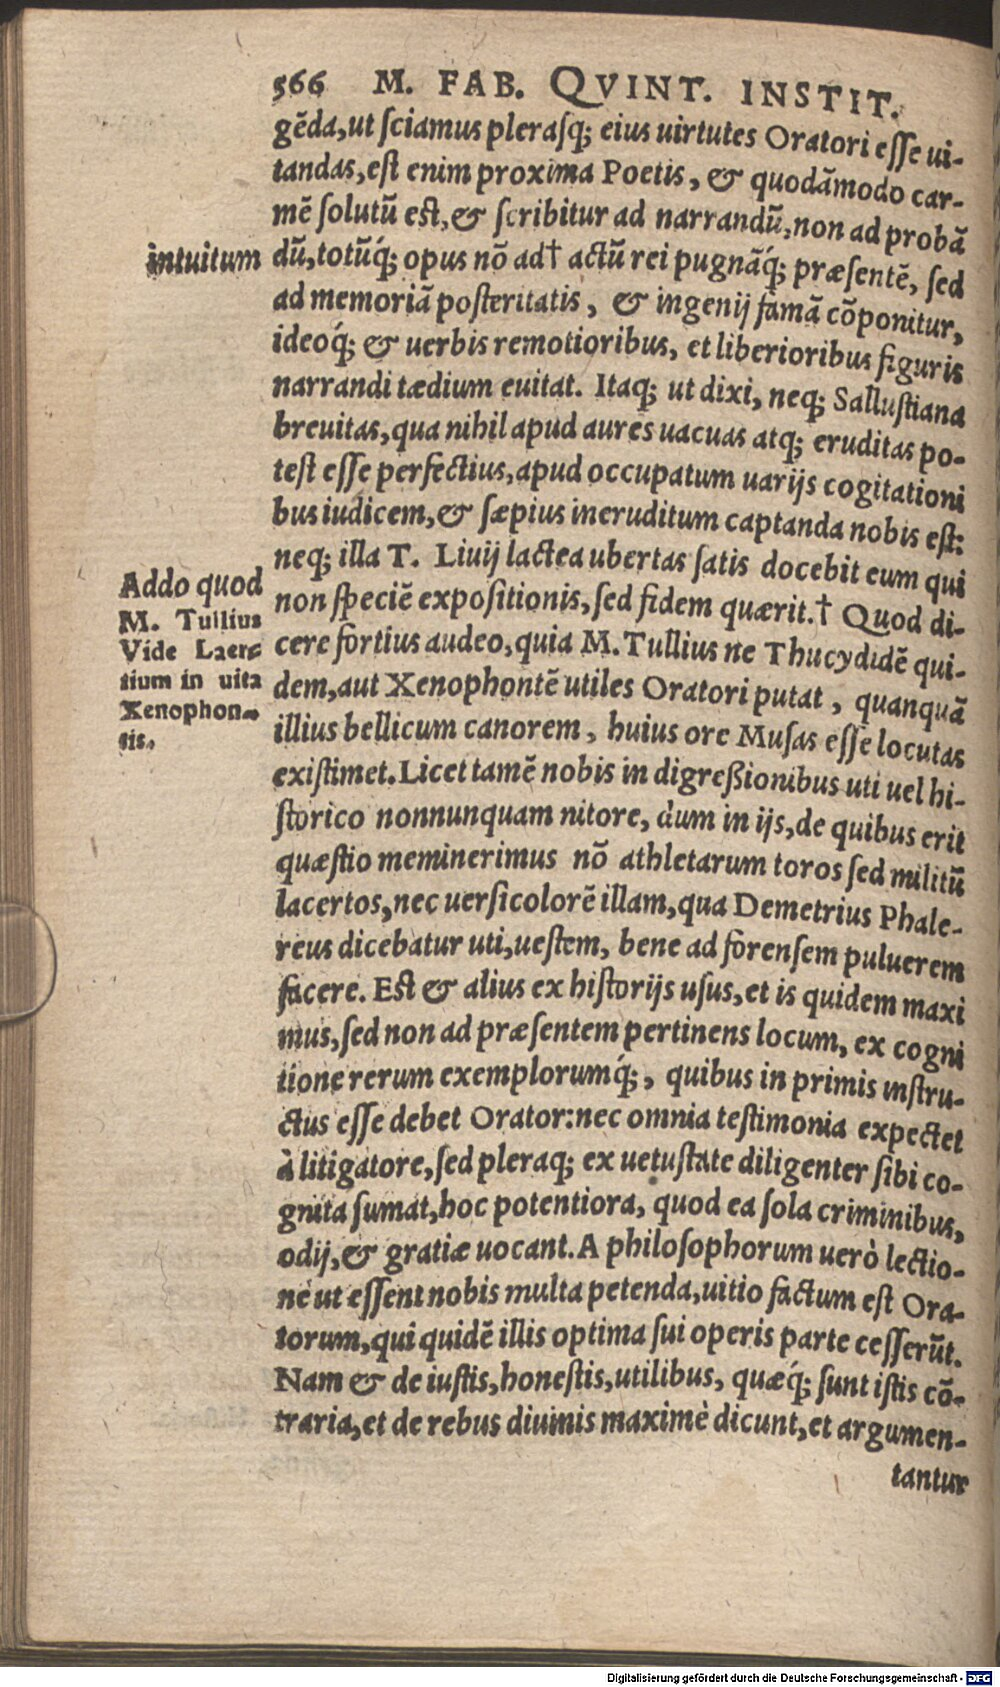 566 M. FAB. QVINT. INSTIT.
gẽda,ut ſciamus pleraſq; eius uirtutes Oratori eſſe ui-
tandas,eſt enim proxima Poetis, & quodãmodo car-
mẽ ſolutũ eſt,& ſcribitur ad narrandũ,non ad probã
intuitum
dũ,totũq́; opus nõ ad† actũ rei pugnãq́; præſentẽ, ſed
ad memoriã poſteritatis, & ingenij famã cõponitur,
ideoq́; & uerbis remotioribus, et liberioribus figuris
narrandi tædium euitat. Itaq; ut dixi, neq; Salluſtiana
breuitas,qua nihil apud aures uacuas atq; eruditas po-
teſt eſſe perfectius,apud occupatum uarijs cogitationi
bus iudicem,& ſæpius ineruditum captanda nobis eſt:
neq; illa T. Liuij lactea ubertas ſatis docebit eum qui
non ſpeciẽ expoſitionis,ſed fidem quærit.† Quod di-
cere fortius audeo,quia M.Tullius ne Thucydidẽ qui-
dem,aut Xenophontẽ utiles Oratori putat, quanquã
illius bellicum canorem, huius ore Muſas eſſe locutas
Addo quod
M. Tullius
Vide Laer-
tium in uita
Xenophon-
tis.
exiſtimet.Licet tamẽ nobis in digreßionibus uti uel hi-
ſtorico nonnunquam nitore, dum in ijs,de quibus erit
quæſtio meminerimus nõ athletarum toros ſed militũ
lacertos,nec uerſicolorẽ illam,qua Demetrius Phale-
reus dicebatur uti,ueſtem, bene ad forenſem puluerem
facere. Eſt & alius ex hiſtorijs uſus,et is quidem maxi
mus,ſed non ad præſentem pertinens locum, ex cogni
tione rerum exemplorumq́;, quibus in primis inſtru-
ctus eſſe debet Orator:nec omnia teſtimonia expectet
à litigatore,ſed pleraq; ex uetuſtate diligenter ſibi co-
gnita ſumat,hoc potentiora, quod ea ſola criminibus,
odij,& gratiæ uocant.A philoſophorum uerò lectio-
ne ut eſſent nobis multa petenda,uitio factum eſt Ora-
torum,qui quidẽ illis optima ſui operis parte ceſſerũt.
Nam & de iuſtis,honeſtis,utilibus, quæq́; ſunt iſtis cõ-
traria,et de rebus diuinis maximè dicunt,et argumen-
tantur
Digitalisierung gefördert durch die Deutsche Forschungsgemeinschaft - DFG